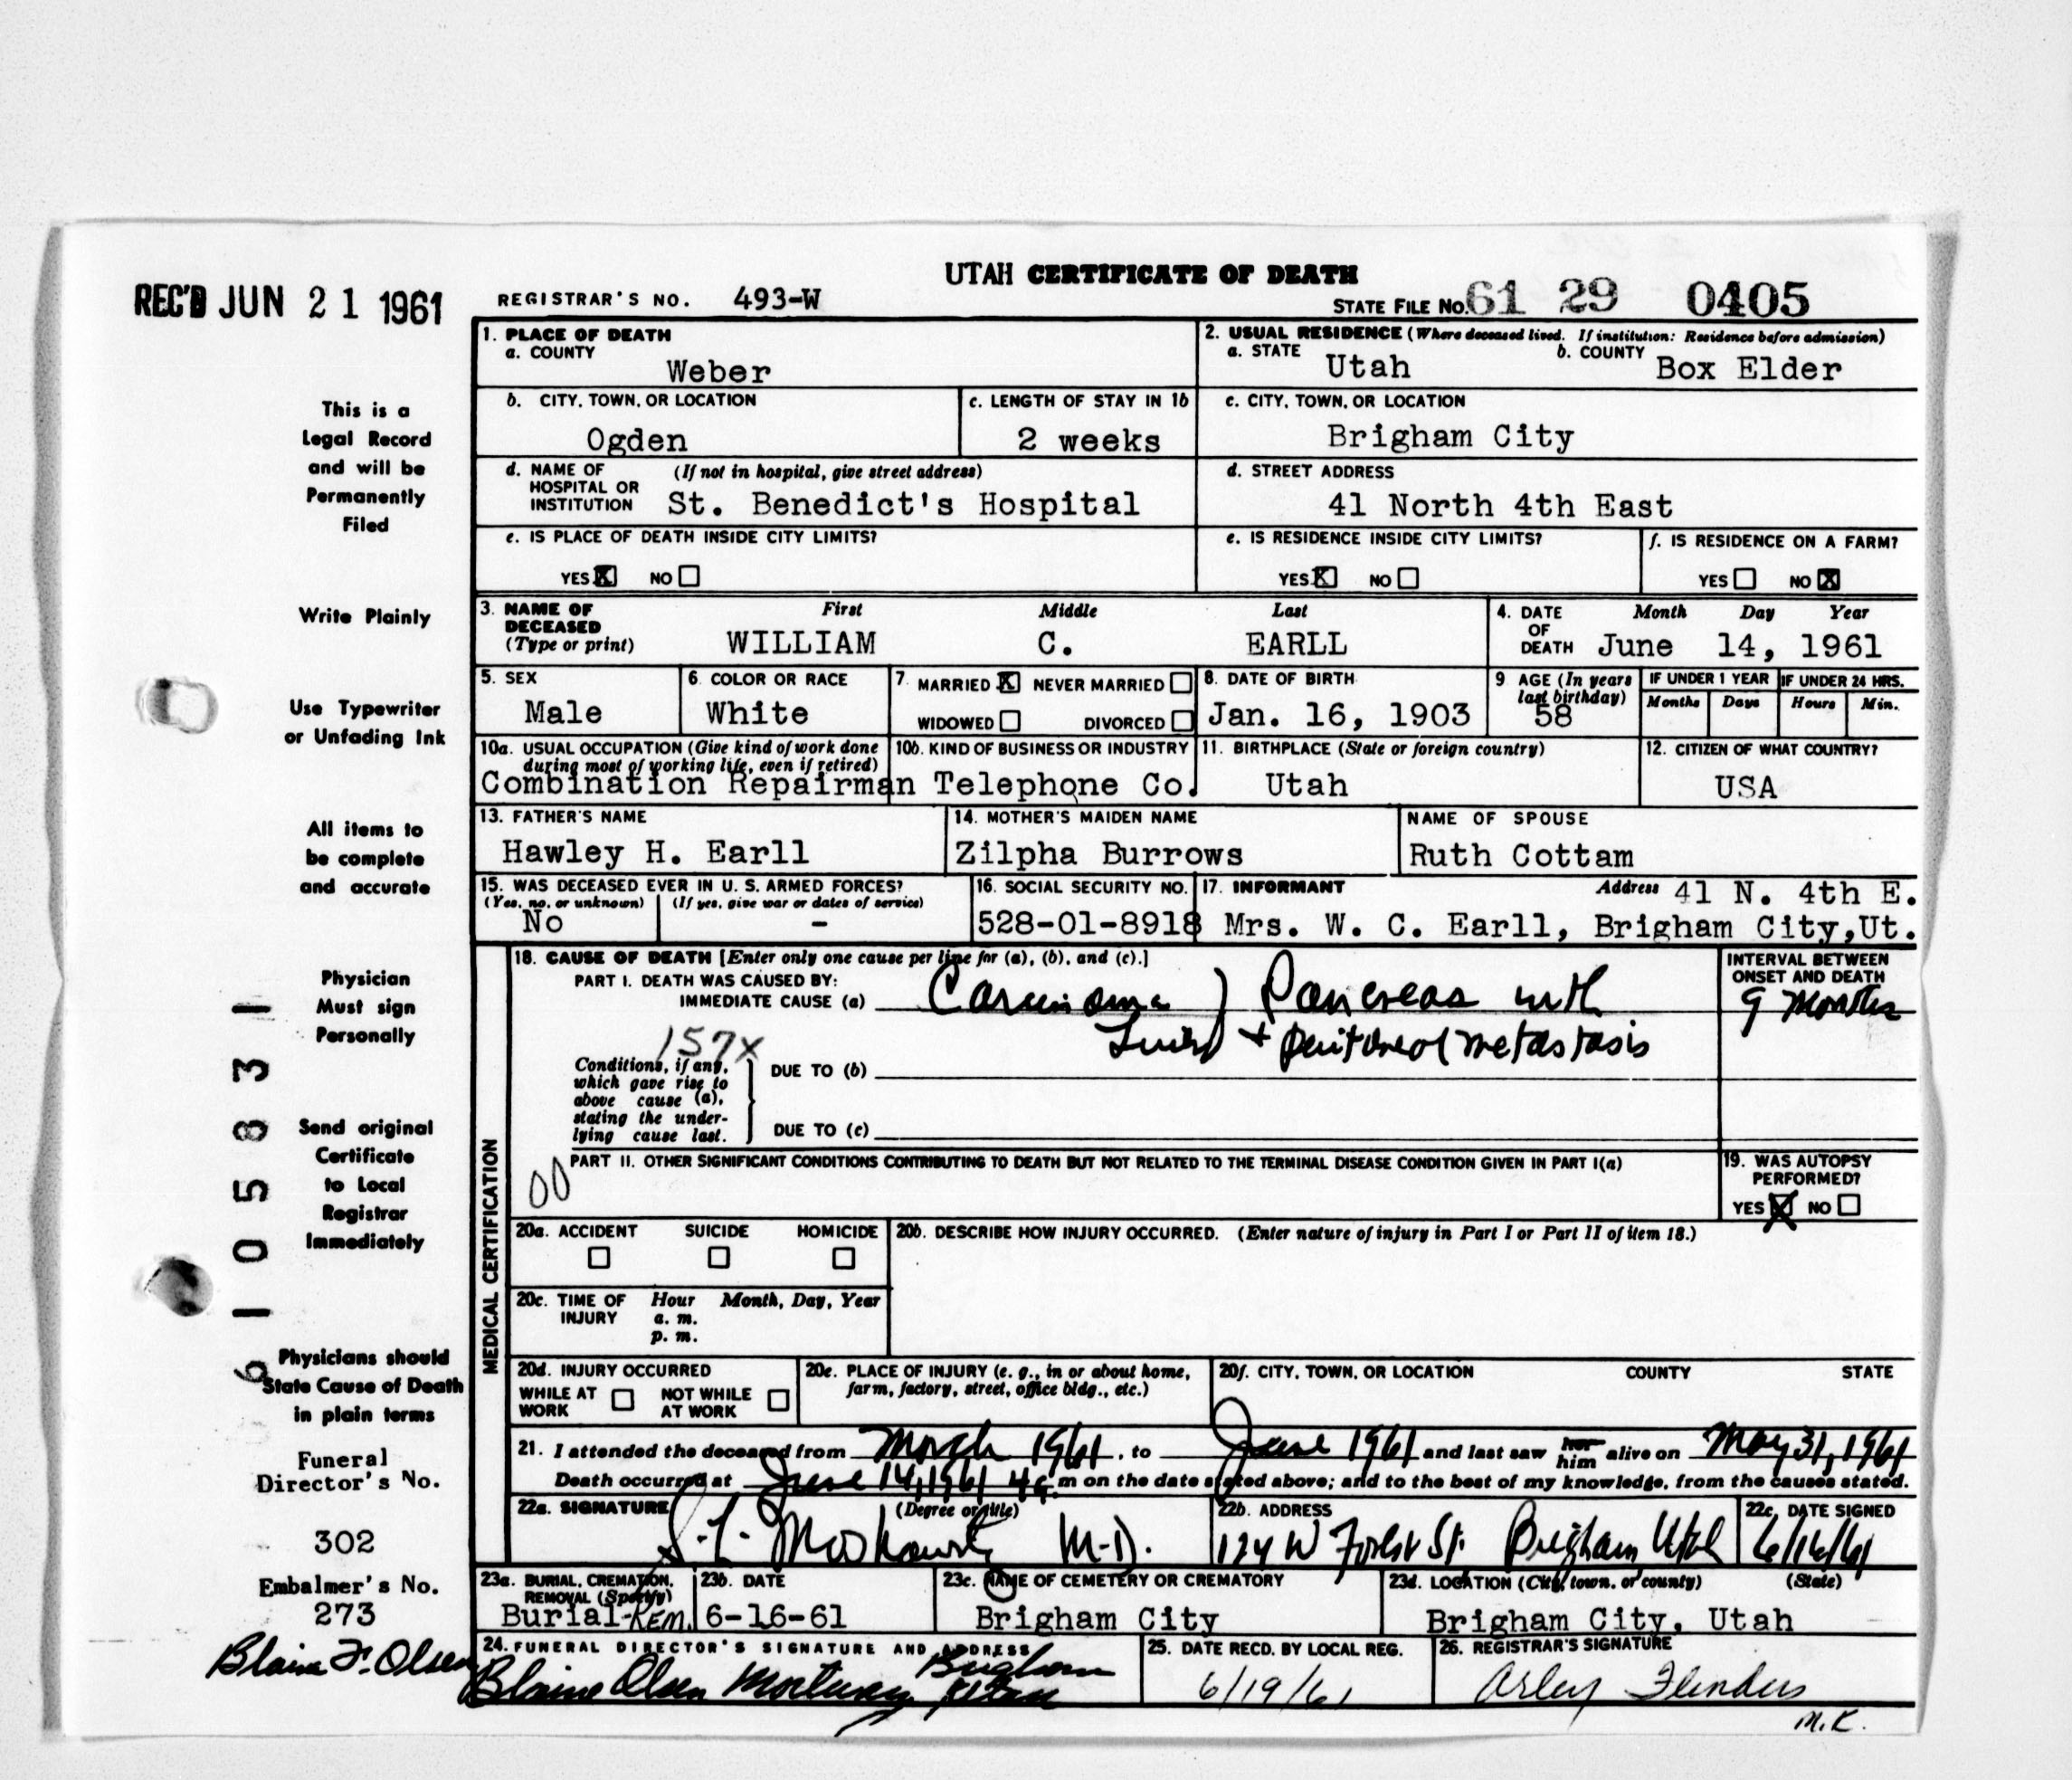 UTAH CERTIFICATE OF DEATH
REC'D JUN 21 1961
REGISTRAR'S NO. 493-W
STATE FILE NO. 61 29 0405
This is a
Legal Record
and will be
Permanently
Filed
Write Plainly
Use Typewriter
or Unfading Ink
All items to
be complete
and accurate
Physician
Must sign
Personally
Send original
Certificate
to Local
Registrar
Immediately
Physicians should
State Cause of Death
in plain terms
Funeral
Director's No.
302
Embalmer's No.
273
Blaine F. Olsen
6 1 0 5 8 3 1
1. PLACE OF DEATH
a. COUNTY
Weber
2. USUAL RESIDENCE (Where deceased lived. If institution: Residence before admission)
a. STATE Utah b. COUNTY Box Elder
b. CITY, TOWN, OR LOCATION
Ogden
c. LENGTH OF STAY IN 1b
2 weeks
c. CITY, TOWN, OR LOCATION
Brigham City
d. NAME OF (If not in hospital, give street address)
HOSPITAL OR
INSTITUTION St. Benedict's Hospital
d. STREET ADDRESS
41 North 4th East
e. IS PLACE OF DEATH INSIDE CITY LIMITS?
YES X NO
e. IS RESIDENCE INSIDE CITY LIMITS?
YES X NO
f. IS RESIDENCE ON A FARM?
YES NO X
3. NAME OF First Middle Last
DECEASED
(Type or print) WILLIAM C. EARLL
4. DATE Month Day Year
OF
DEATH June 14, 1961
5. SEX
Male
6. COLOR OR RACE
White
7. MARRIED X NEVER MARRIED
WIDOWED DIVORCED
8. DATE OF BIRTH
Jan. 16, 1903
9. AGE (In years
last birthday)
58
IF UNDER 1 YEAR IF UNDER 24 HRS.
Months Days Hours Min.
10a. USUAL OCCUPATION (Give kind of work done
during most of working life, even if retired)
Combination Repairman
10b. KIND OF BUSINESS OR INDUSTRY
Telephone Co.
11. BIRTHPLACE (State or foreign country)
Utah
12. CITIZEN OF WHAT COUNTRY?
USA
13. FATHER'S NAME
Hawley H. Earll
14. MOTHER'S MAIDEN NAME
Zilpha Burrows
NAME OF SPOUSE
Ruth Cottam
15. WAS DECEASED EVER IN U. S. ARMED FORCES?
(Yes, no, or unknown) (If yes, give war or dates of service)
No -
16. SOCIAL SECURITY NO.
528-01-8918
17. INFORMANT Address 41 N. 4th E.
Mrs. W. C. Earll, Brigham City,Ut.
MEDICAL CERTIFICATION
18. CAUSE OF DEATH [Enter only one cause per line for (a), (b), and (c).]
PART I. DEATH WAS CAUSED BY:
IMMEDIATE CAUSE (a) Carcinoma of Pancreas with
Liver + peritoneal metastasis
INTERVAL BETWEEN
ONSET AND DEATH
9 Months
157x
Conditions, if any,
which gave rise to
above cause (a),
stating the under-
lying cause last.
DUE TO (b)
DUE TO (c)
PART II. OTHER SIGNIFICANT CONDITIONS CONTRIBUTING TO DEATH BUT NOT RELATED TO THE TERMINAL DISEASE CONDITION GIVEN IN PART I(a)
00
19. WAS AUTOPSY
PERFORMED?
YES X NO
20a. ACCIDENT SUICIDE HOMICIDE
20b. DESCRIBE HOW INJURY OCCURRED. (Enter nature of injury in Part I or Part II of item 18.)
20c. TIME OF Hour Month, Day, Year
INJURY a. m.
p. m.
20d. INJURY OCCURRED
WHILE AT NOT WHILE
WORK AT WORK
20e. PLACE OF INJURY (e. g., in or about home,
farm, factory, street, office bldg., etc.)
20f. CITY, TOWN, OR LOCATION COUNTY STATE
21. I attended the deceased from March 1961, to June 1961 and last saw her him alive on May 31, 1961
Death occurred at June 14, 1961 4 a m on the date stated above; and to the best of my knowledge, from the causes stated.
22a. SIGNATURE (Degree or title)
M.D.
22b. ADDRESS
124 W Forest St. Brigham Utah
22c. DATE SIGNED
6/16/61
23a. BURIAL, CREMATION,
REMOVAL (Specify)
Burial-Rem.
23b. DATE
6-16-61
23c. NAME OF CEMETERY OR CREMATORY
Brigham City
23d. LOCATION (City, town, or county) (State)
Brigham City, Utah
24. FUNERAL DIRECTOR'S SIGNATURE AND ADDRESS
Blaine Olsen Mortuary Brigham Utah
25. DATE RECD. BY LOCAL REG.
6/19/61
26. REGISTRAR'S SIGNATURE
Arley Flinders
M.K.